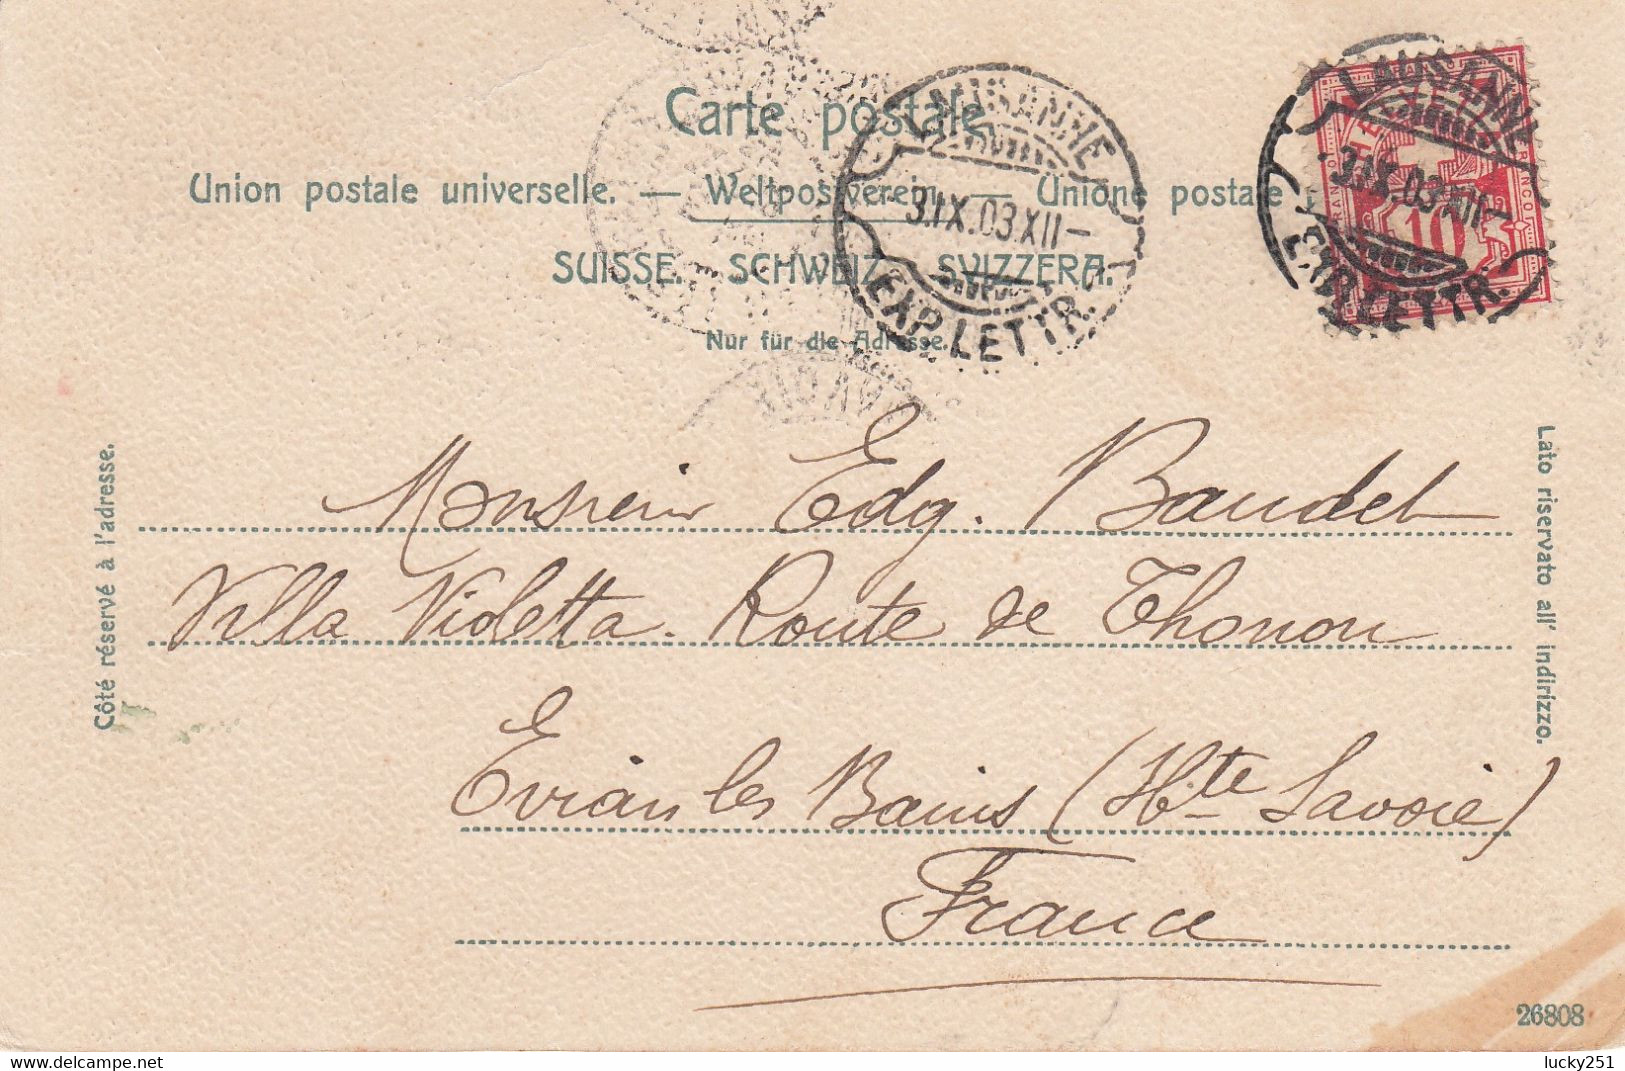 Carte postale.
Union postale universelle. — Weltpostverein. — Unione postale
SUISSE. SCHWEIZ. SVIZZERA.
Nur für die Adresse.
LAUSANNE
3.IX.03.XII–
EXP. LETTR.
LAUSANNE
3.IX.03.XII–
EXP. LETTR.
FRANCO
HE
10
Côté réservé à l'adresse.
Lato riservato all' indirizzo.
Monsieur Edg. Baudet
Villa Violetta. Route de Thonon
Evian les Bains (Hte Savoie)
France
26808
lucky251